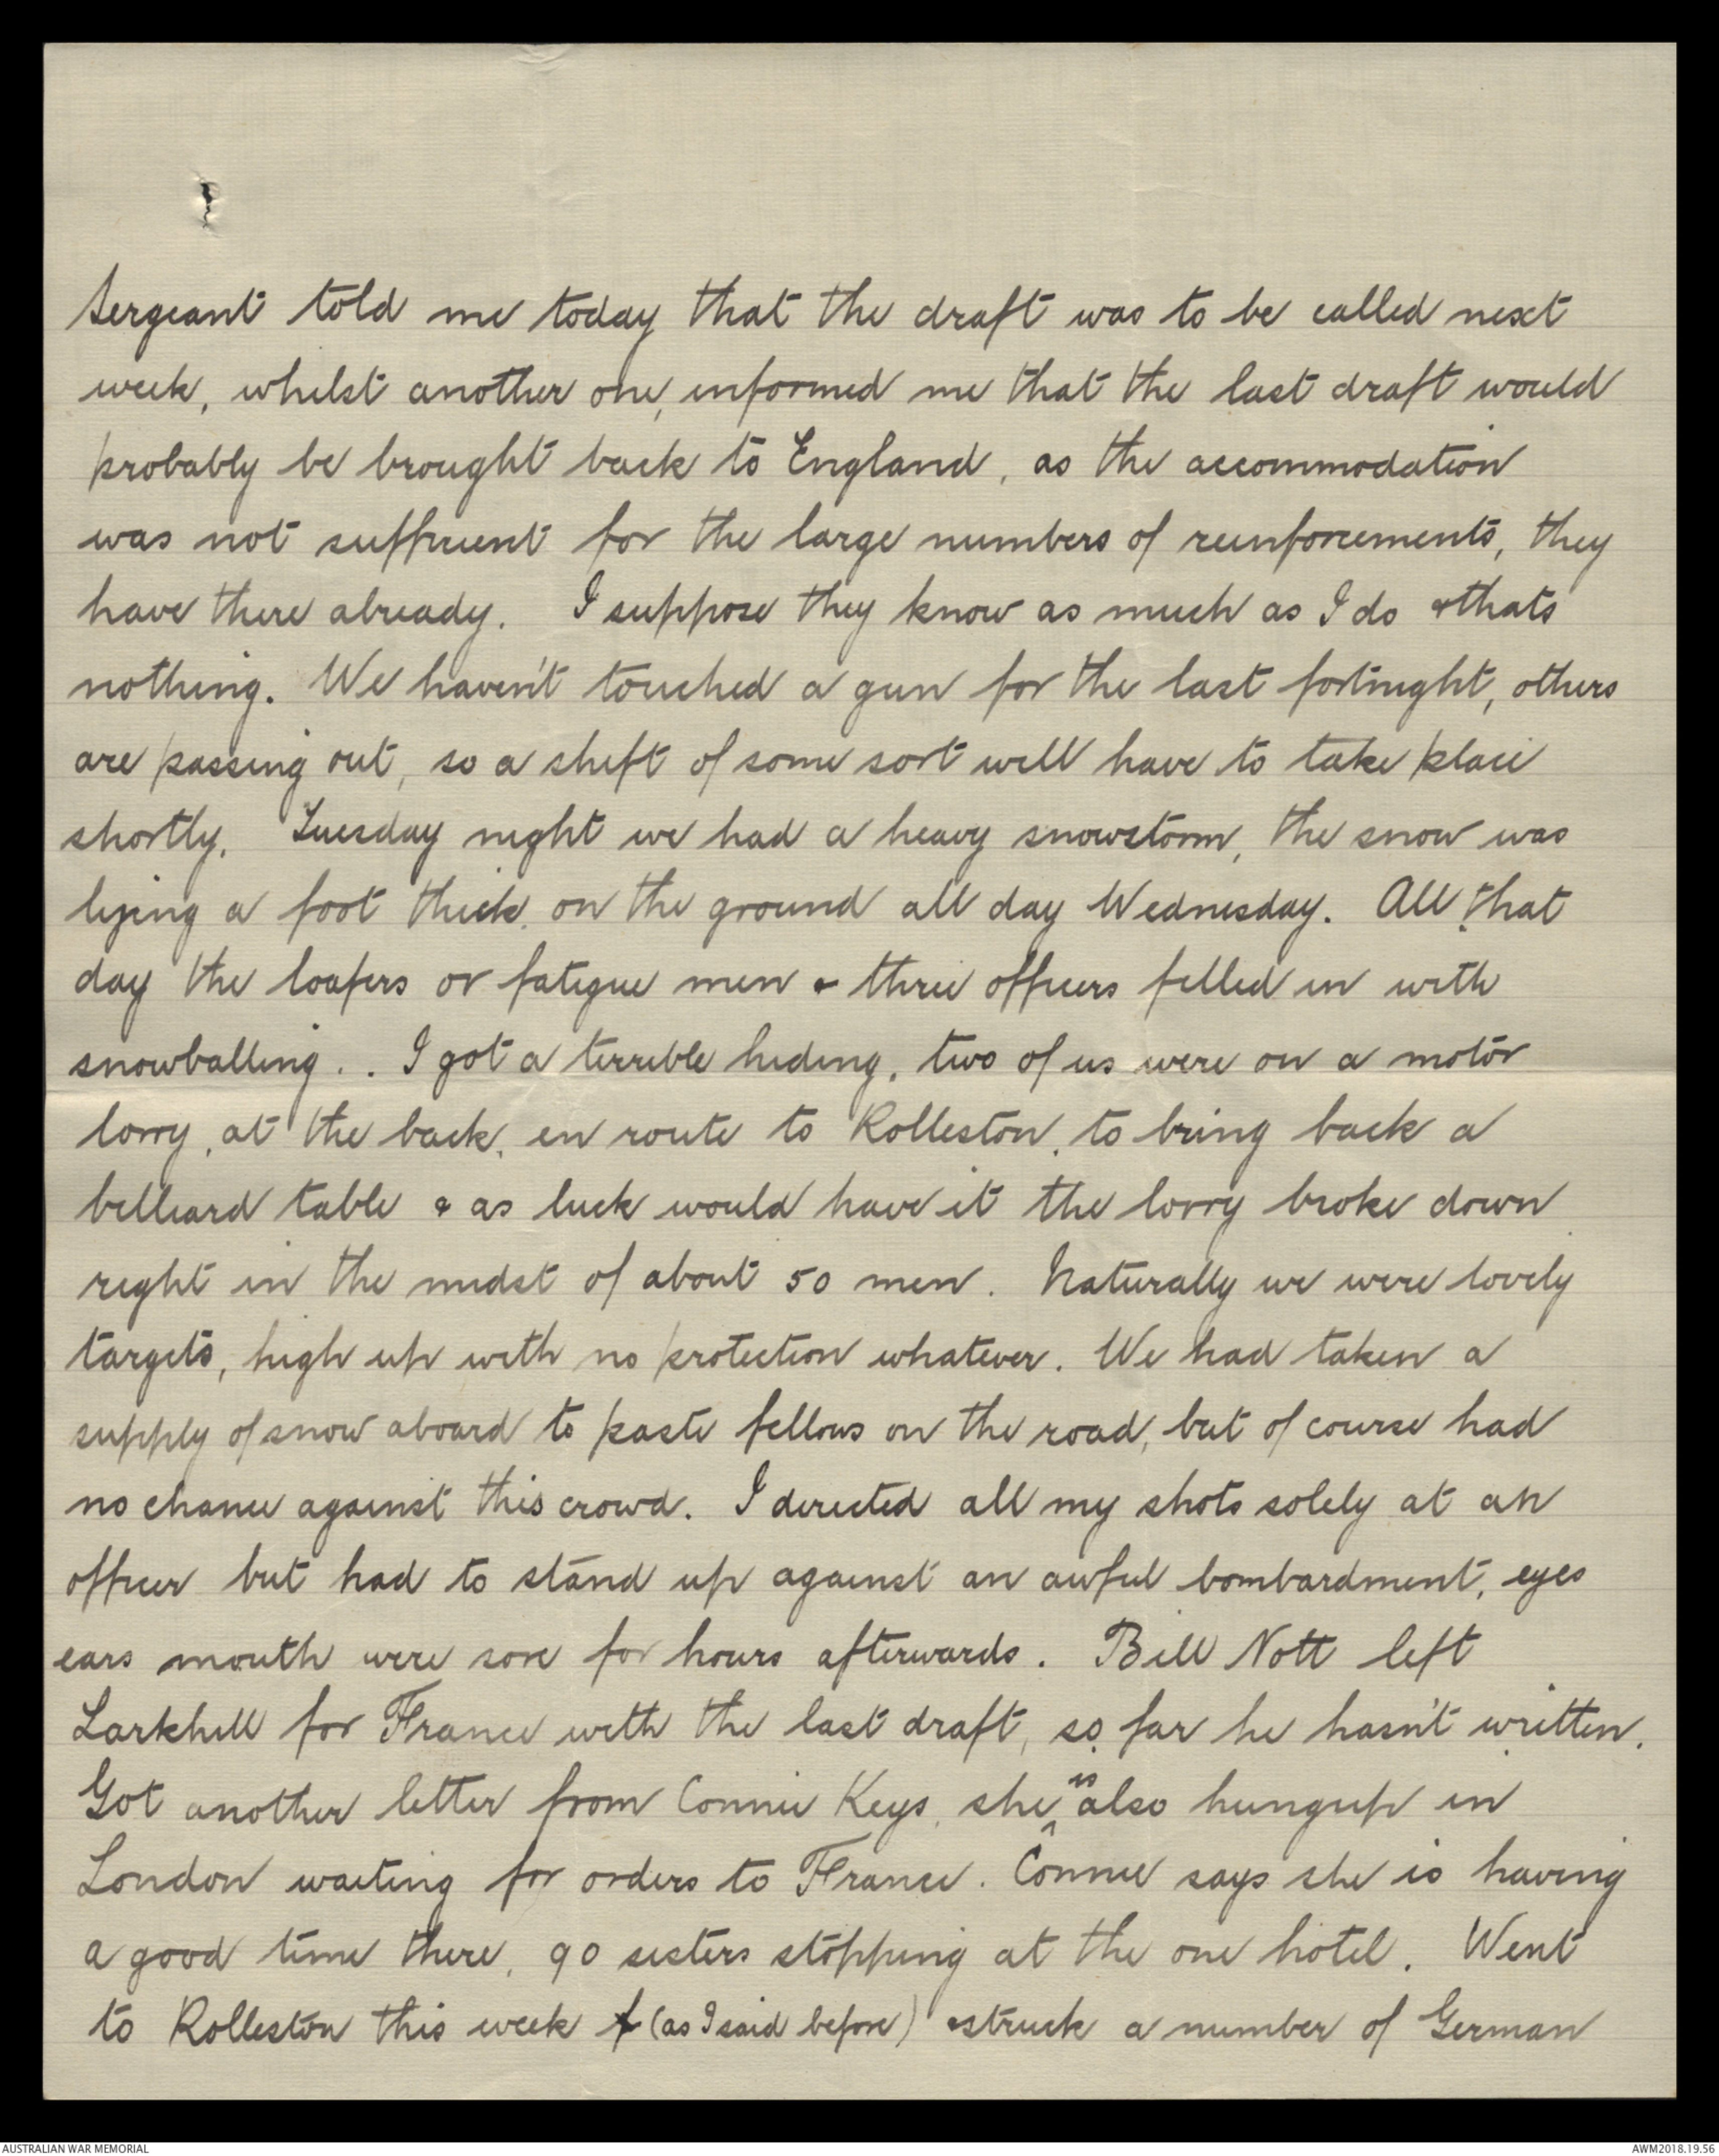 Sergeant told me today that the draft was to be called next
week, whilst another one, informed me that the last draft would
probably be brought back to England, as the accommodation
was not sufficient for the large numbers of reinforcements, they
have there already. I suppose they know as much as I do & thats
nothing. We haven't touched a gun for the last fortnight, others
are passing out, so a shift of some sort will have to take place
shortly. Tuesday night we had a heavy snowstorm, the snow was
lying a foot thick, on the ground all day Wednesday. All that
day the loafers or fatigue men & three officers filled in with
snowballing.. I got a terrible hiding, two of us were on a motor
lorry, at the back, en route to Rolleston, to bring back a
billiard table & as luck would have it the lorry broke down
right in the midst of about 50 men. Naturally we were lovely
targets, high up with no protection whatever. We had taken a
supply of snow aboard to paste fellows on the road, but of course had
no chance against this crowd. I directed all my shots solely at an
officer but had to stand up against an awful bombardment, eyes
ears mouth were sore for hours afterwards. Bill Nott left
Larkhill for France with the last draft, so far he hasn't written.
Got another letter from Connie Keys, she is also hungup in
London waiting for orders to France. Connie says she is having
a good time there, 90 sisters stopping at the one hotel. Went
to Rolleston this week (as I said before) & struck a number of German
AUSTRALIAN WAR MEMORIAL
AWM2018.19.56